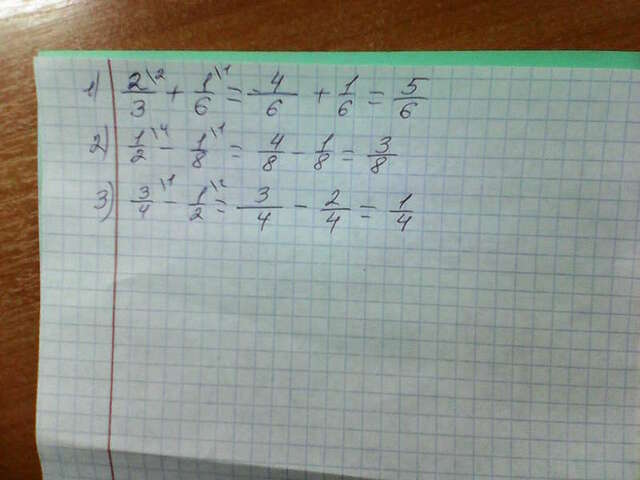 1) 2/3\2 + 1/6\1 = 4/6 + 1/6 = 5/6
2) 1/2\4 - 1/8\1 = 4/8 - 1/8 = 3/8
3) 3/4\1 - 1/2\2 = 3/4 - 2/4 = 1/4